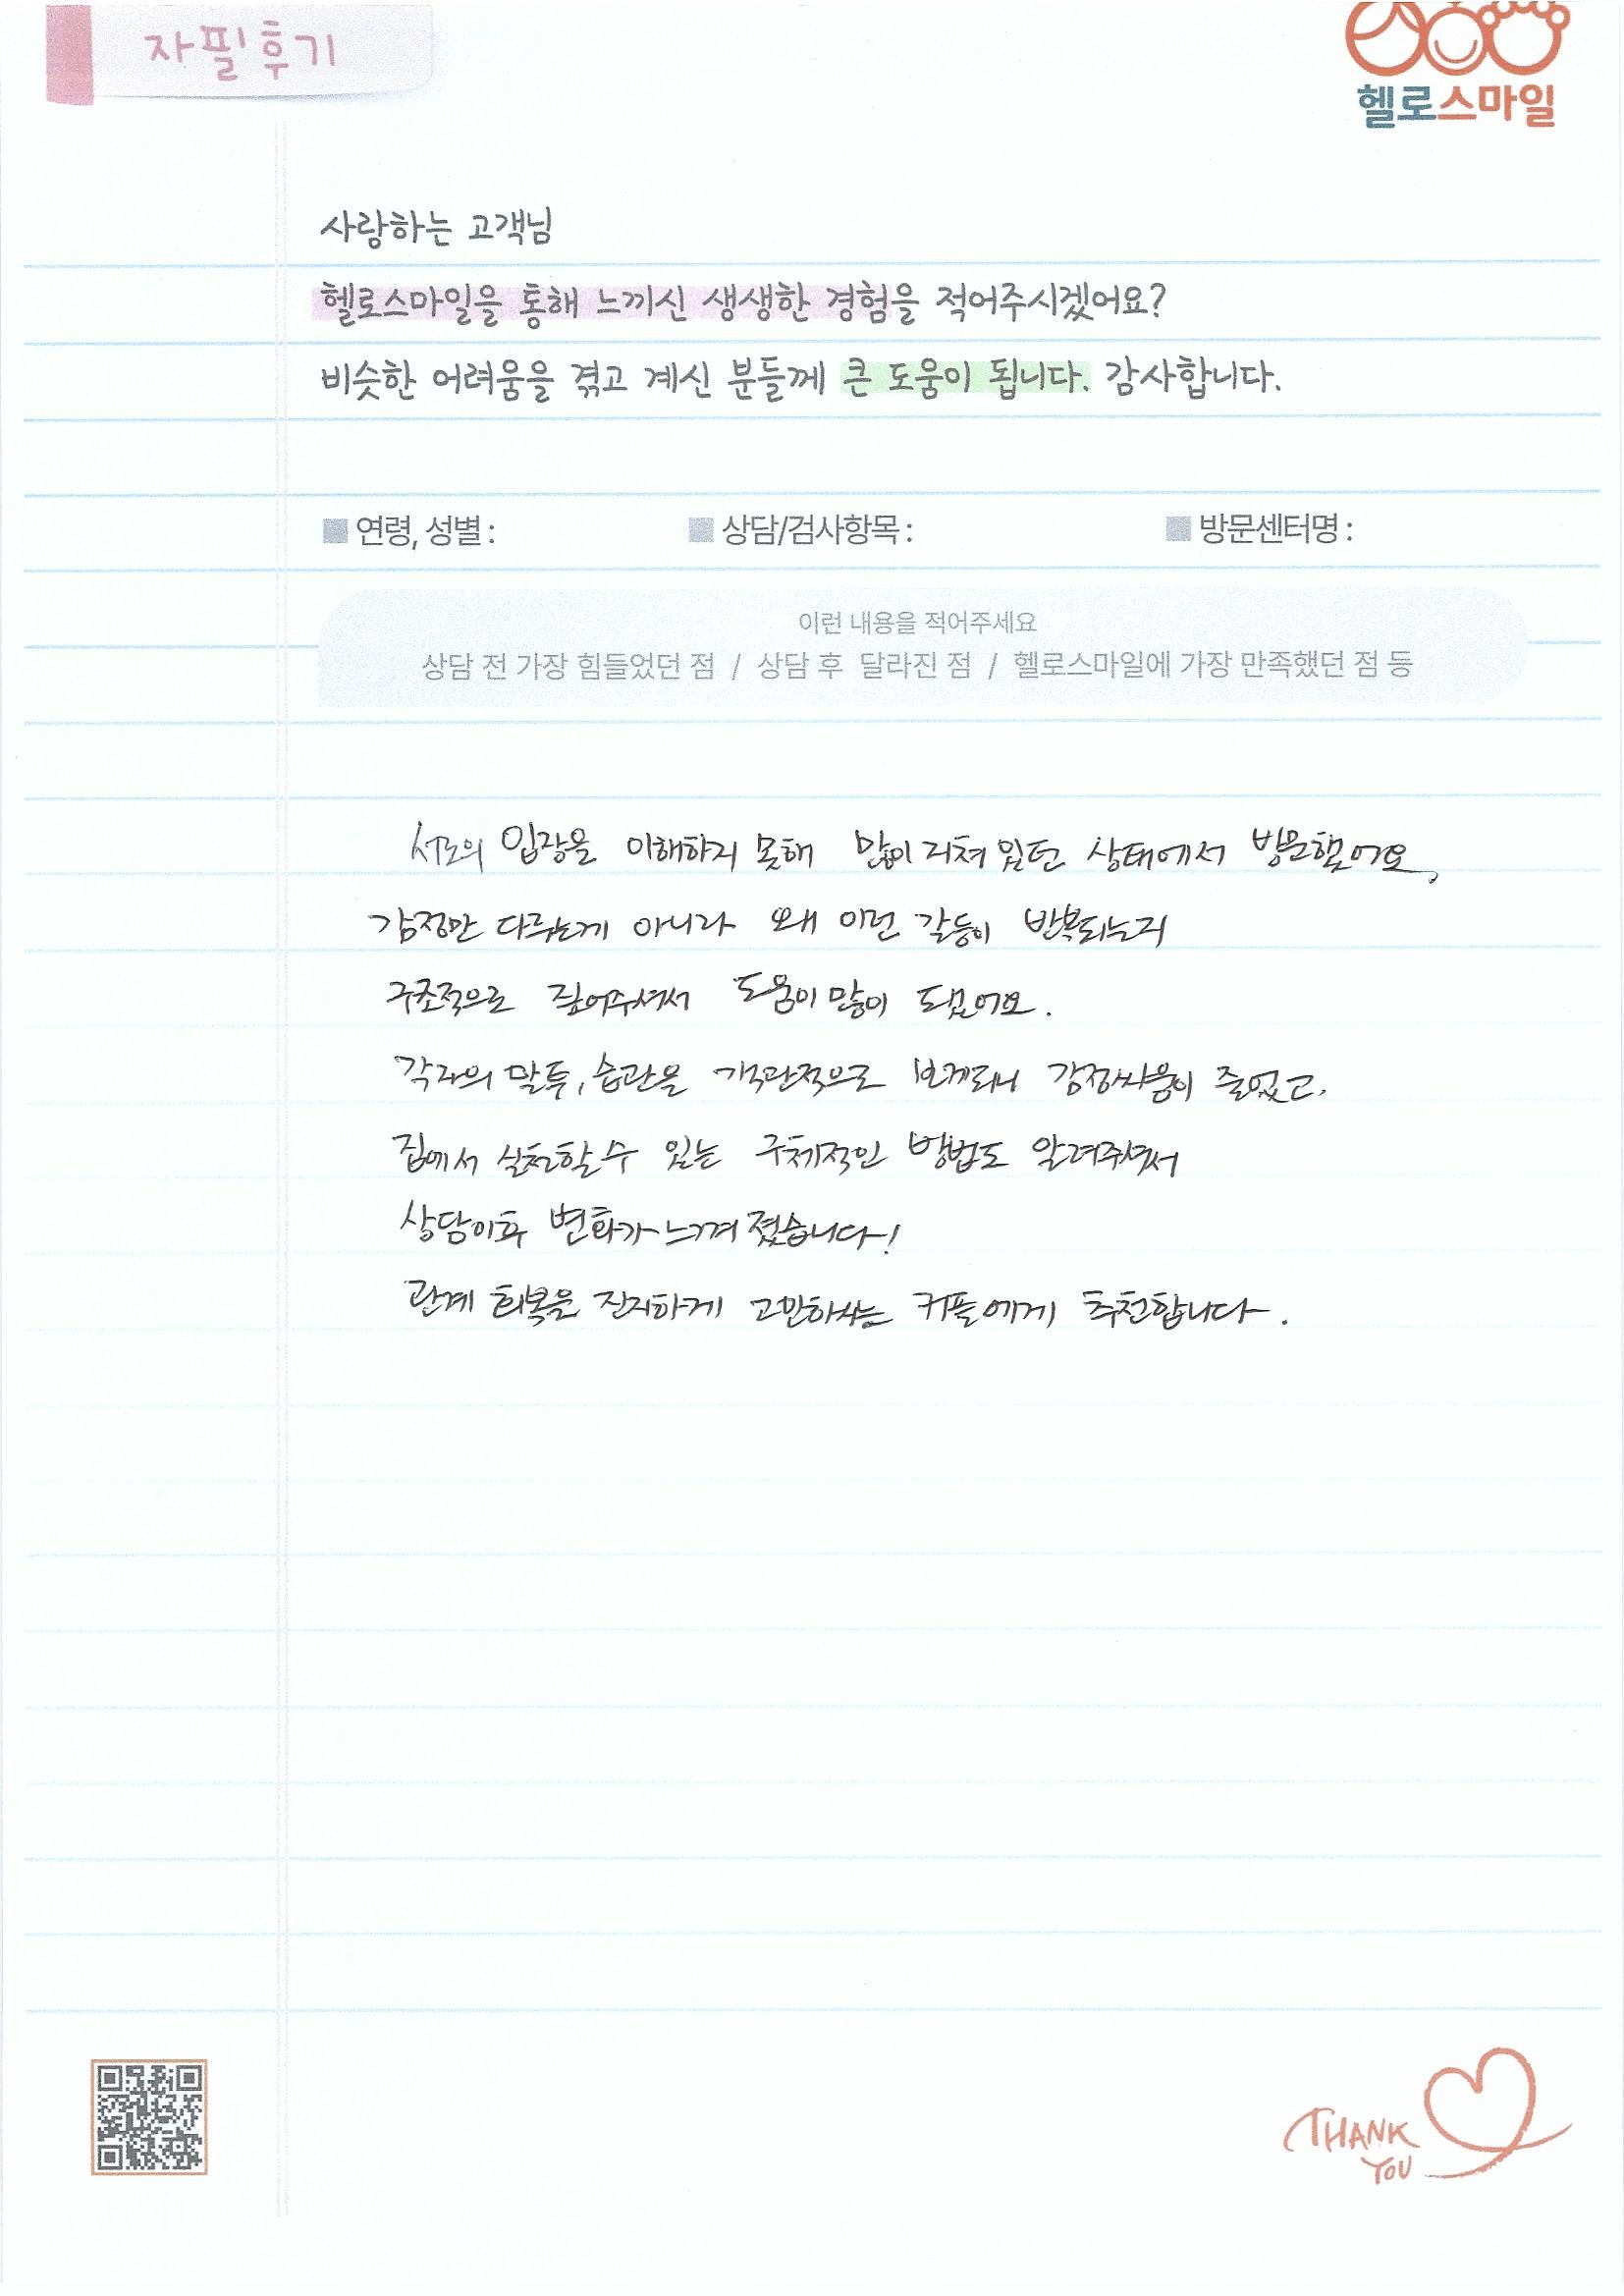 자필후기
헬로스마일
사랑하는 고객님
헬로스마일을 통해 느끼신 생생한 경험을 적어주시겠어요?
비슷한 어려움을 겪고 계신 분들께 큰 도움이 됩니다. 감사합니다.
■ 연령, 성별 : ■ 상담/검사항목 : ■ 방문센터명 :
이런 내용을 적어주세요
상담 전 가장 힘들었던 점 / 상담 후 달라진 점 / 헬로스마일에 가장 만족했던 점 등
서로의 입장을 이해하지 못해 많이 지쳐 있던 상태에서 방문했어요,
감정만 다루는게 아니라 왜 이런 갈등이 반복되는지
구조적으로 짚어주셔서 도움이 많이 됐어요.
각자의 말투, 습관을 객관적으로 보게되니 감정싸움이 줄었고,
집에서 실천할 수 있는 구체적인 방법도 알려주셔서
상담이후 변화가 느껴졌습니다!
관계 회복을 진지하게 고민하시는 커플에게 추천합니다.
THANK
YOU